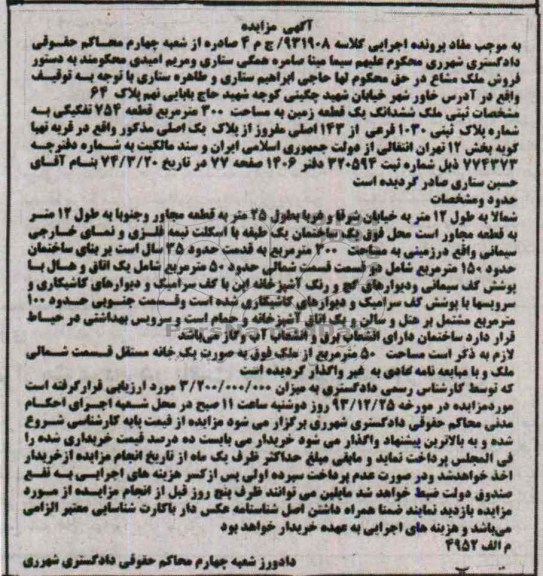 آگهی مزایده
به موجب مفاد پرونده اجرایی کلاسه ۹۳۱۹۰۸/ج م ۴ صادره از شعبه چهارم محاکم حقوقی
دادگستری شهرری محکوم علیهم سیما مینا صامره همگی ستاری ومریم امیدی محکومند به دستور
فروش ملک مشاع در حق محکوم لها حاجی ابراهیم ستاری و طاهره ستاری با توجه به توقیف
واقع در آدرس خاور شهر خیابان شهید چگینی کوچه شهید حاج بابایی نهم پلاک ۶۴
مشخصات ثبتی ملک ششدانگ یک قطعه زمین به مساحت ۳۰۰ مترمربع قطعه ۷۵۴ تفکیکی به
شماره پلاک ثبتی ۱۰۳۰ فرعی از ۱۴۳ اصلی مفروز از پلاک یک اصلی مذکور واقع در قریه نهیا
کویه بخش ۱۲ تهران انتقالی از دولت جمهوری اسلامی ایران و سند مالکیت به شماره دفترچه
۷۷۴۳۷۳ ذیل شماره ثبت ۳۲۰۵۹۴ دفتر ۱۴۰۶ صفحه ۷۷ در تاریخ ۷۴/۳/۲۰ بنام آقای
حسین ستاری صادر گردیده است
حدود ومشخصات
شمالا به طول ۱۲ متر به خیابان شرقا و غربا بطول ۲۵ متر به قطعه مجاور وجنوبا به طول ۱۲ متر
به قطعه مجاور است محل فوق یک ساختمان یک طبقه با اسکلت نیمه فلزی و نمای خارجی
سیمانی واقع درزمینی به مساحت ۳۰۰ مترمربع به قدمت حدود ۳۵ سال است بر بنای ساختمان
حدود ۱۵۰ مترمربع شامل دو قسمت قسمت شمالی حدود ۵۰ مترمربع شامل یک اتاق و هال با
پوشش کف سیمانی ودیوارهای گچ و رنگ آشپزخانه اپن با کف سرامیک و دیوارهای کاشیکاری و
سرویسها با پوشش کف سرامیک و دیوارهای کاشیکاری شده است وقسمت جنوبی حدود ۱۰۰
مترمربع مشتمل بر هتل و سالن و یک اتاق آشپزخانه و حمام است و سرویس بهداشتی در حیاط
قرار دارد ساختمان دارای انشعاب برق و انشعاب آب وگاز می‌باشد
لازم به ذکر است مساحت ۵۰ مترمربع از ملک فوق به صورت یک خانه مستقل قسمت شمالی
ملک و با مبایعه نامه عادی به غیر واگذار گردیده است
که توسط کارشناس رسمی دادگستری به میزان ۳/۲۰۰/۰۰۰/۰۰۰ مورد ارزیابی قرارگرفته است
موردمزایده در مورخه ۹۳/۱۲/۲۵ روز دوشنبه ساعت ۱۱ صبح در محل شعبه اجرای احکام
مدنی محاکم حقوقی دادگستری شهرری برگزار می شود مزایده از قیمت پایه کارشناسی شروع
شده و به بالاترین پیشنهاد واگذار می شود خریدار می بایست ده درصد قیمت خریداری شده را
فی المجلس پرداخت نماید و مابقی مبلغ حداکثر ظرف یک ماه از تاریخ انجام مزایده ازخریدار
اخذ خواهدشد ودر صورت عدم پرداخت سپرده اولی پس ازکسر هزینه های اجرایی به نفع
صندوق دولت ضبط خواهد شد مایلین می توانند ظرف پنج روز قبل از انجام مزایده از مورد
مزایده بازدید نمایند ضمنا همراه داشتن اصل شناسنامه عکس دار یاکارت شناسایی معتبر الزامی
می‌باشد و هزینه های اجرایی به عهده خریدار خواهد بود
م الف ۴۹۵۲
دادورز شعبه چهارم محاکم حقوقی دادگستری شهرری